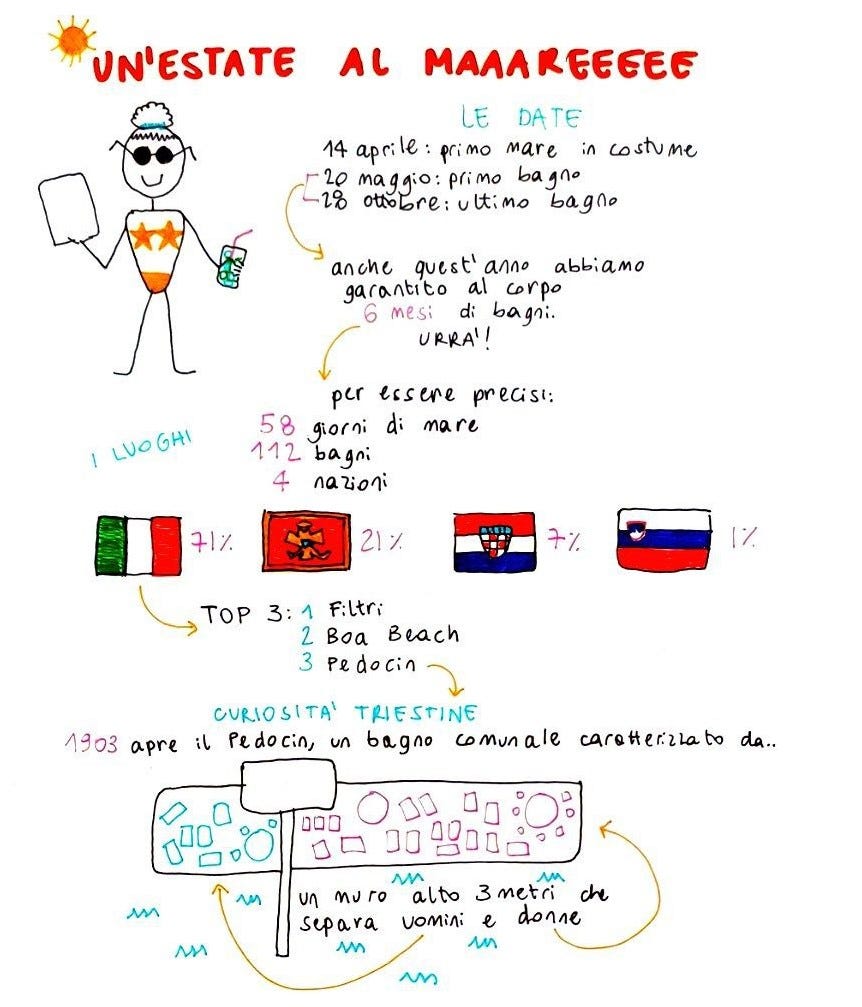 UN'ESTATE AL MAAAREEEEE
LE DATE
14 aprile: primo mare in costume
20 maggio: primo bagno
28 ottobre: ultimo bagno
anche quest'anno abbiamo
garantito al corpo
6 mesi di bagni.
URRA'!
per essere precisi:
58 giorni di mare
112 bagni
4 nazioni
I LUOGHI
71%
21%
7%
1%
TOP 3: 1 Filtri
2 Boa Beach
3 Pedocin
CURIOSITA' TRIESTINE
1903 apre il Pedocin, un bagno comunale caratterizzato da..
un muro alto 3 metri che
separa uomini e donne